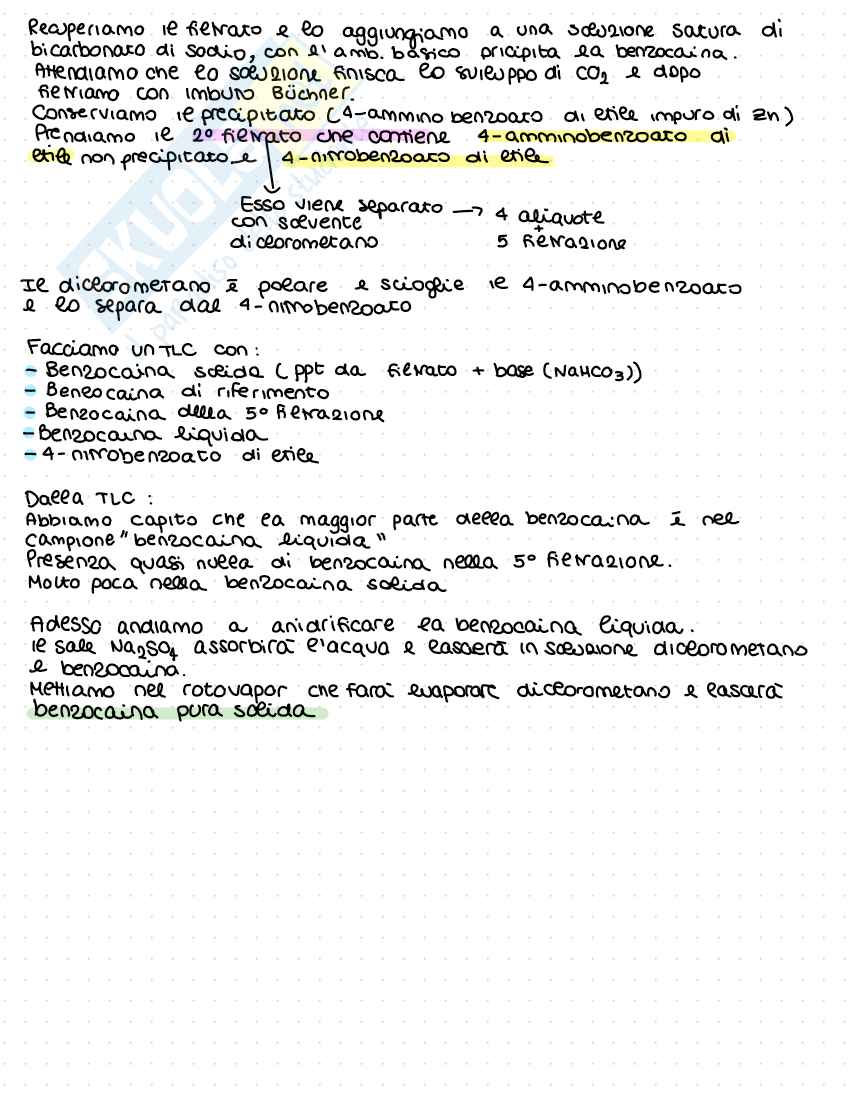 Recuperiamo il filtrato e lo aggiungiamo a una soluzione satura di
bicarbonato di sodio, con l'amb. basico pricipita la benzocaina.
Attendiamo che la soluzione finisca lo sviluppo di CO2 e dopo
filtriamo con imbuto Büchner.
Conserviamo il precipitato (4-ammino benzoato di etile impuro di Zn)
Prendiamo il 2° filtrato che contiene 4-amminobenzoato di
etile non precipitato e 4-nitrobenzoato di etile
Esso viene separato → 4 aliquote
con solvente +
diclorometano 5 filtrazione
Il diclorometano è polare e scioglie il 4-amminobenzoato
e lo separa dal 4-nitrobenzoato
Facciamo un TLC con:
- Benzocaina solida (ppt da filtrato + base (NaHCO3))
- Benzocaina di riferimento
- Benzocaina della 5° filtrazione
- Benzocaina liquida
- 4-nitrobenzoato di etile
Dalla TLC:
Abbiamo capito che la maggior parte della benzocaina è nel
campione "benzocaina liquida"
Presenza quasi nulla di benzocaina nella 5° filtrazione.
Molto poca nella benzocaina solida
Adesso andiamo a anidrificare la benzocaina liquida.
Il sale Na2SO4 assorbirà l'acqua e lascerà in soluzione diclorometano
e benzocaina.
Mettiamo nel rotovapor che farà evaporare diclorometano e lascerà
benzocaina pura solida